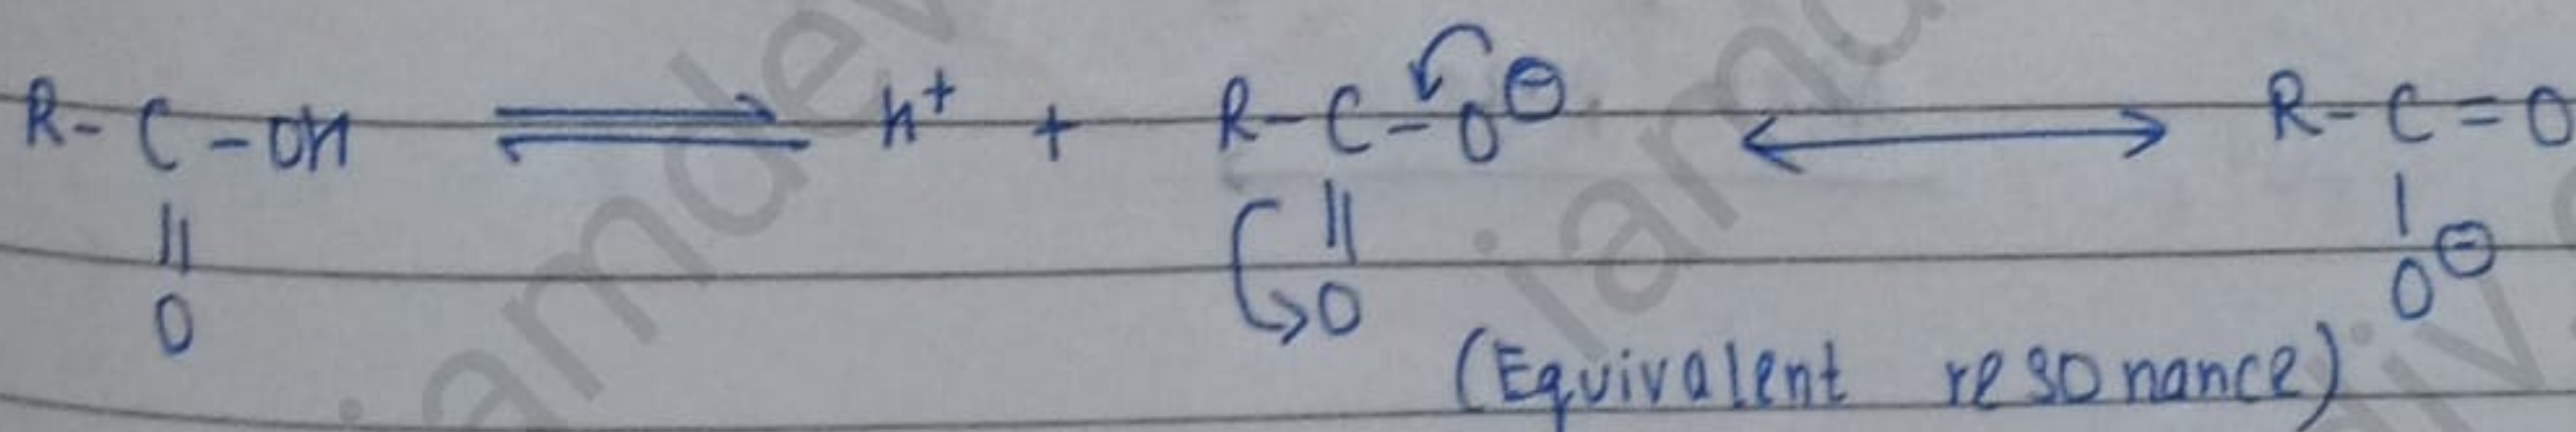 R-C-OH ⇌ H⁺ + R-C-O⊖ ⟷ R-C=O
|| || |
O O O⊖
(Equivalent resonance)